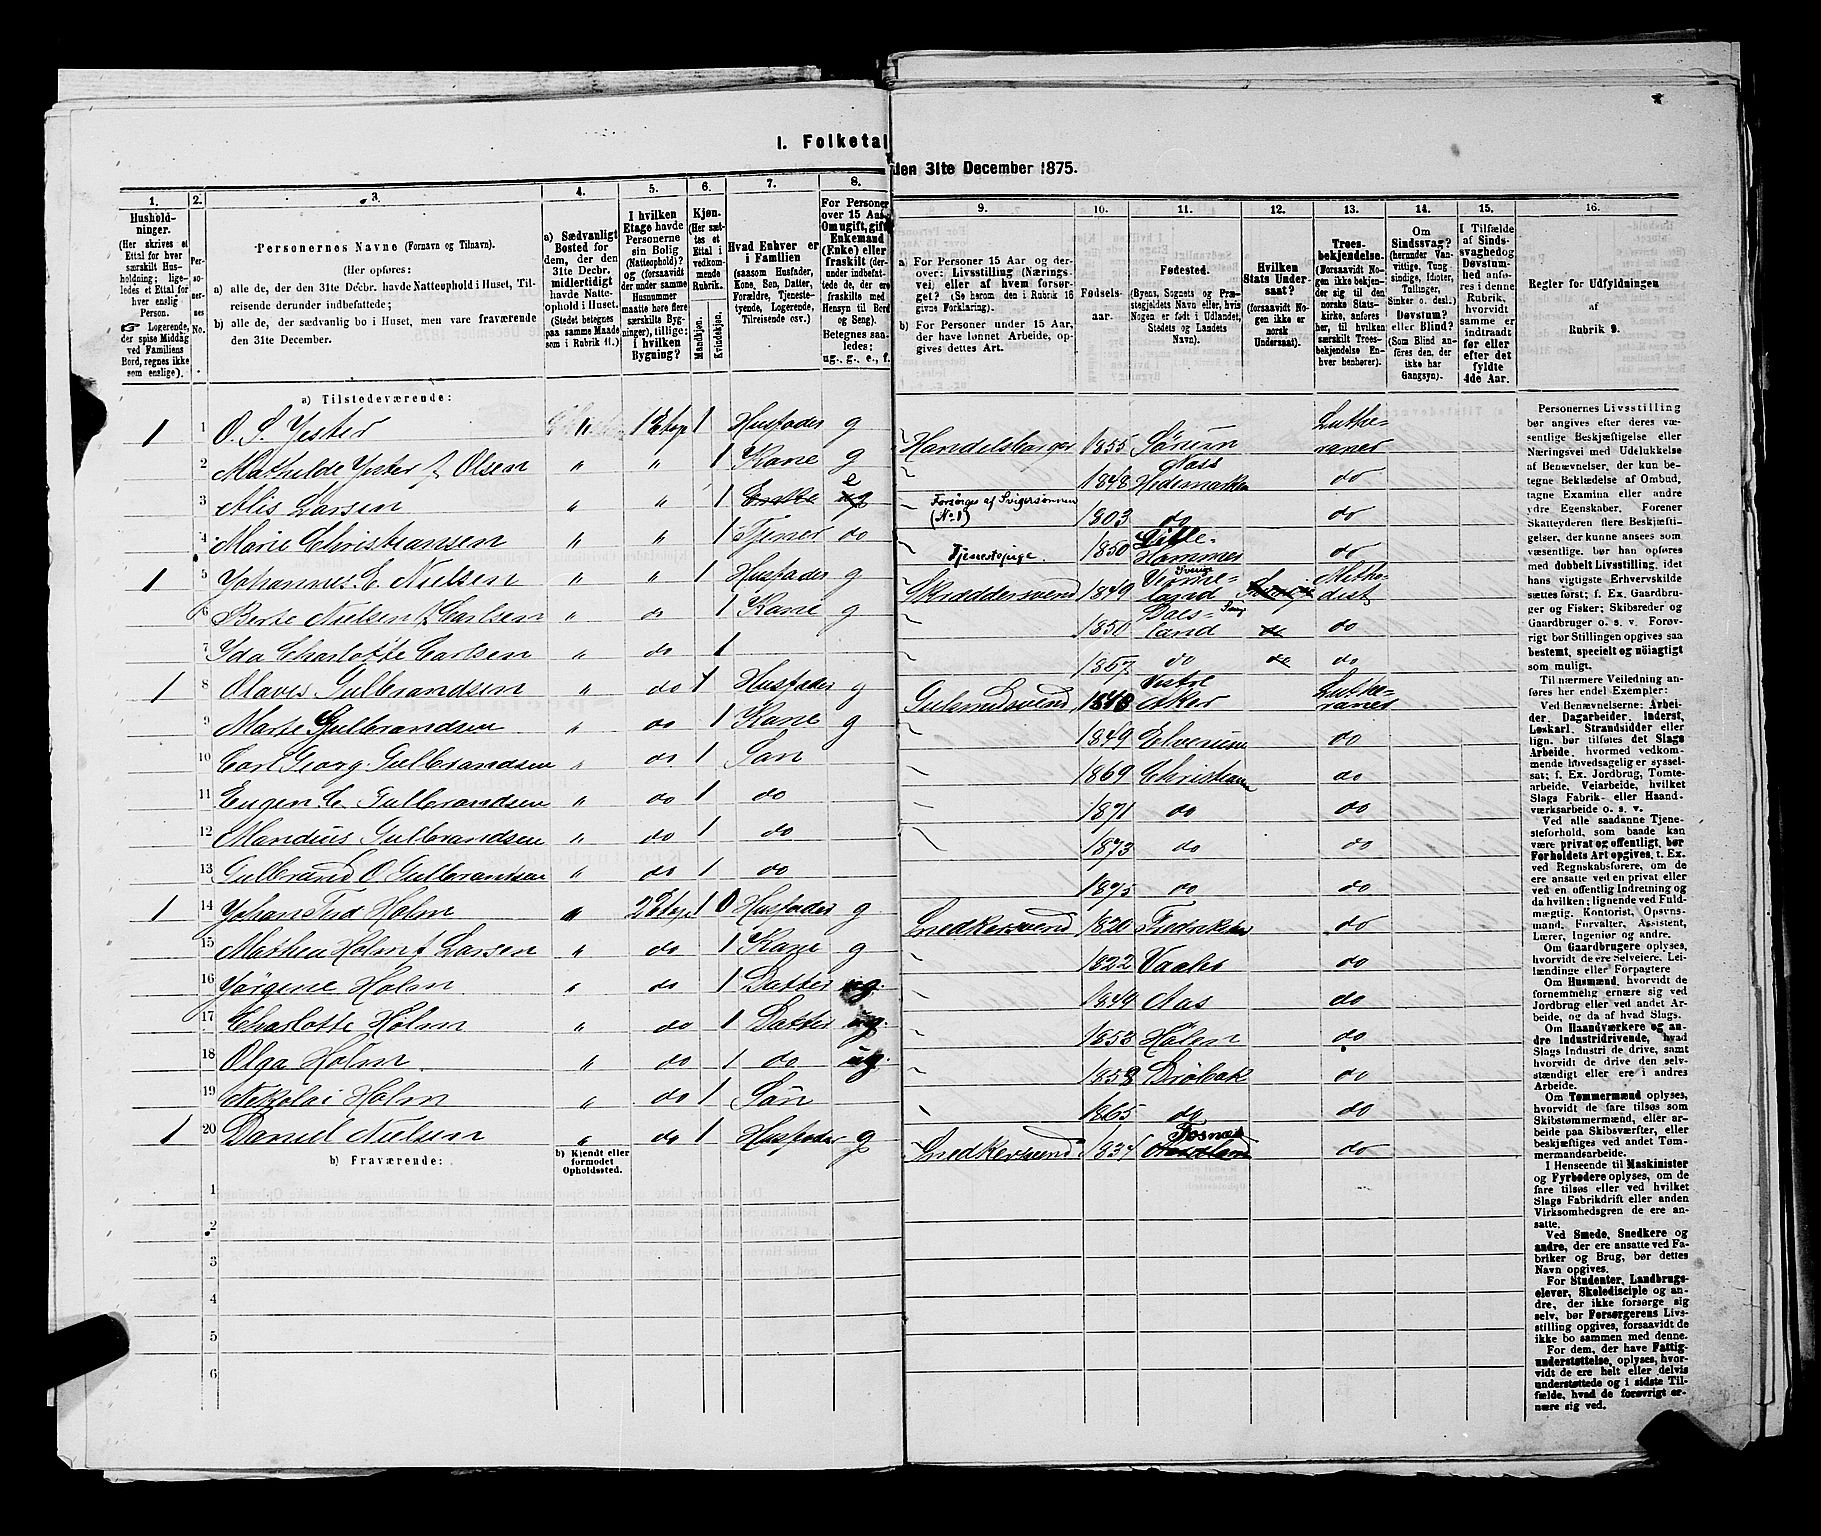 I. Folketal
den 31te December 1875.
1. 2. 3. 4. 5. 6. 7. 8. 9. 10. 11. 12. 13. 14. 15. 16.
Hushold-
ninger.
(Her skrives et
Ettal for hver
særskilt Hus-
holdning; lige-
ledes et Ettal for
hver enslig
Person.
☞ Logerende,
der spise Middag
ved Familiens
Bord, regnes ikke
som enslige).
Per-
so-
ner-
nes
No.
Personernes Navne (Fornavn og Tilnavn).
(Her opføres:
a) alle de, der den 31te Decbr. havde Natteophold i Huset, Til-
reisende derunder indbefattede;
b) alle de, der sædvanlig bo i Huset, men vare fraværende
den 31te December.
a) Sædvanligt
Bosted for
dem, der den
31te Decbr.
midlertidigt
havde Natte-
ophold i Huset.
(Stedet betegnes
paa samme Maade
som i Rubrik 11.)
I hvilken
Etage havde
Personerne
sin Bolig
(Natteophold)?
og (forsaavidt
der under samme
Husnummer
maatte høre flere
særskilte Byg-
ninger), tillige:
i hvilken
Bygning?
Kjøn.
(Her sæt-
tes et
Ettal i
vedkom-
mende
Rubrik.
Mandkjøn.
Kvindekjøn.
Hvad Enhver er
i Familien
(saasom Husfader,
Kone, Søn, Datter,
Forældre, Tjeneste-
tyende, Logerende,
Tilreisende osv.)
For Personer
over 15 Aar.
Om ugift, gift
Enkemand
(Enke) eller
fraskilt (der-
under indbefat-
tede de, der ere
fraskilte med
Hensyn til Bord
og Seng).
Betegnes saa-
ledes:
ug., g., e., f.
a) For Personer 15 Aar og der-
over: Livsstilling (Nærings-
vei) eller af hvem forsør-
get? (Se herom den i Rubrik 16
givne Forklaring).
b) For Personer under 15 Aar,
der have lønnet Arbeide, op-
gives dettes Art.
Fødsels-
aar.
Fødested.
(Byens, Sognets og Præ-
stegjeldets Navn eller, hvis
Nogen er født i Udlandet,
Stedets og Landets
Navn).
Hvilken
Stats Under-
saat?
(forsaavidt No-
gen ikke er
norsk
Undersaat).
Troes-
bekjendelse.
(Forsaavidt No-
gen ikke bekjen-
der sig til den
norske Stats-
kirke, anføres
her, til hvilken
særskilt Troes-
bekjendelse En-
hver henhører).
Om
Sindssvag?
(herunder Van-
vittige, Tung-
sindige, Idioter,
Tullinger,
Sinker o. desl.)
Døvstum?
eller Blind?
(Som Blind an-
føres den, der
ikke har
Gangsyn).
I Tilfælde
af Sinds-
svaghed og
Døvstum-
hed anfø-
res i denne
Rubrik,
hvorvidt
samme er
indtraadt
før eller
efter det
fyldte
4de Aar.
Regler for Udfyldningen
af
Rubrik 9.
a) Tilstedeværende:
1 1 O. S. Yster " 1 Etage 1 Husfader g Handelsborger 1855 Sørum Luthe-
raner
2 Mathilde Yster f. Olsen " " 1 Kone g 1848 Næs
Hedemarken do
3 Alis Larsen " " 1 Enke e Forsørges af Svigersønnen
(No. 1) 1803 do do
4 Marie Christiansen " " 1 Tjener do Tjenestepige. 1850 Lille-
Hammer do
1 5 Johannes E. Nielsen " " 1 Husfader g Skræddersvend 1849 Verme-
land Sverige Metho-
dist
6 Berte Nielsen f. Carlsen " do 1 Kone g 1850 Dals-
land do do
7 Ida Charlotte Carlsen " do 1 1867 do do do
1 8 Olaves Gulbrandsen " do 1 Husfader g Gulsmedsvend 1848 Vestre
Aker Luthe-
raner
9 Marte Gulbrandsen " do 1 Kone g 1849 Elverum do
10 Carl Georg Gulbrandsen " do 1 Søn 1869 Christiania do
11 Eugen C. Gulbrandsen " do 1 do 1871 do do
12 Mandius Gulbrandsen " do 1 do 1873 do do
13 Gulbrand O. Gulbrandsen " do 1 do 1875 do do
1 14 Johan Holm " 2 Etage 1 0 Husfader g Snedkersvend 1820 do
15 Mathea Holm f. Larsen " do 1 Kone g 1822 Vaaler do
16 Jørgene Holm " do 1 Datter ug. 1849 Aas do
17 Charlotte Holm " do 1 Datter ug. 1853 Hølen do
18 Olga Holm " do 1 do ug. 1858 Drøbak do
19 Nikolai Holm " do 1 Søn 1865 do do
1 20 Daniel Nielsen " do 1 Husfader g Snedkersvend 1837 Fosnæs do
b) Fraværende:
b) Kjendt eller
formodet
Opholdssted.
1
2
3
4
5
6
Personernes Livsstilling
bør angives efter deres væ-
sentlige Beskjæftigelse eller
Næringsvei med Udelukkelse
af Benævnelser, der kun be-
tegne Beklædelse af Ombud,
tagne Examina eller andre
ydre Egenskaber. Forener
Skatteyderen flere Beskjæfti-
gelser, der kunne ansees som
væsentlige, bør han opføres
med dobbelt Livsstilling, idet
hans vigtigste Erhvervskilde
sættes først; f. Ex. Gaardbru-
ger og Fisker; Skibsreder og
Gaardbruger o. s. v. Forøv-
rigt bør Stillingen opgives saa
bestemt, specielt og nöiagtigt
som muligt.
Til nærmere Veiledning an-
føres her endel Exempler:
Ved Benævnelserne: Arbei-
der, Dagarbeider, Inderst,
Løskarl, Strandsidder eller
lign. bør tilføies det Slags
Arbeide, hvormed vedkom-
mende hovedsagelig er syssel-
sat; f. Ex. Jordbrug, Tomte-
arbeide, Veiarbeide, hvilket
Slags Fabrik- eller Haand-
værksarbeide o. s. v.
Ved alle saadanne Tjene-
steforhold, som baade kan
være privat og offentligt, bør
Forholdets Art opgives, t. Ex.
ved Regnskabsførere, om de
ere ansatte ved en privat eller
ved en offentlig Indretning og
da hvilken; lignende ved Fuld-
mægtig, Kontorist, Opsyns-
mand, Forvalter, Assistent,
Lærer, Ingeniør og andre.
Om Gaardbrugere oplyses,
hvorvidt de ere Selveiere, Lei-
lændinge eller Forpagtere
Om Husmænd, hvorvidt de
fornemmelig ernære sig ved
Jordbrug eller ved andet Ar-
beide, og da af hvad Slags.
Om Haandværkere og an-
dre Industridrivende, hvad
Slags Industri de drive, samt
hvorvidt de drive den selv-
stændigt eller ere i andres
Arbeide.
Om Tømmermænd oplyses,
hvorvidt de fare tilsøs som
Skibstømmermænd, eller ar-
beide paa Skibsværfter, eller
beskjæftiges ved andet Tøm-
mermandsarbeide.
I Henseende til Maskinister
og Fyrbødere oplyses, om de
fare tilsøs eller ved hvilket
Slags Fabrikdrift eller anden
Virksomhedsgren de ere an-
satte.
Ved Smede, Snedkere og
andre, der ere ansatte ved Fa-
briker og Brug, bør dettes
Navn opgives.
For Studenter, Landbrugs-
elever, Skoledisciple og an-
dre, der ikke forsørge sig
selv, bør Forsørgerens Livs-
stilling opgives, forsaavidt de
ikke bo sammen med denne.
For dem, der have Fattig-
understøttelse, oplyses, hvor-
vidt de ere helt eller delvis
understøttede og i sidste Til-
fælde, hvad de forøvrigt er-
nære sig ved.